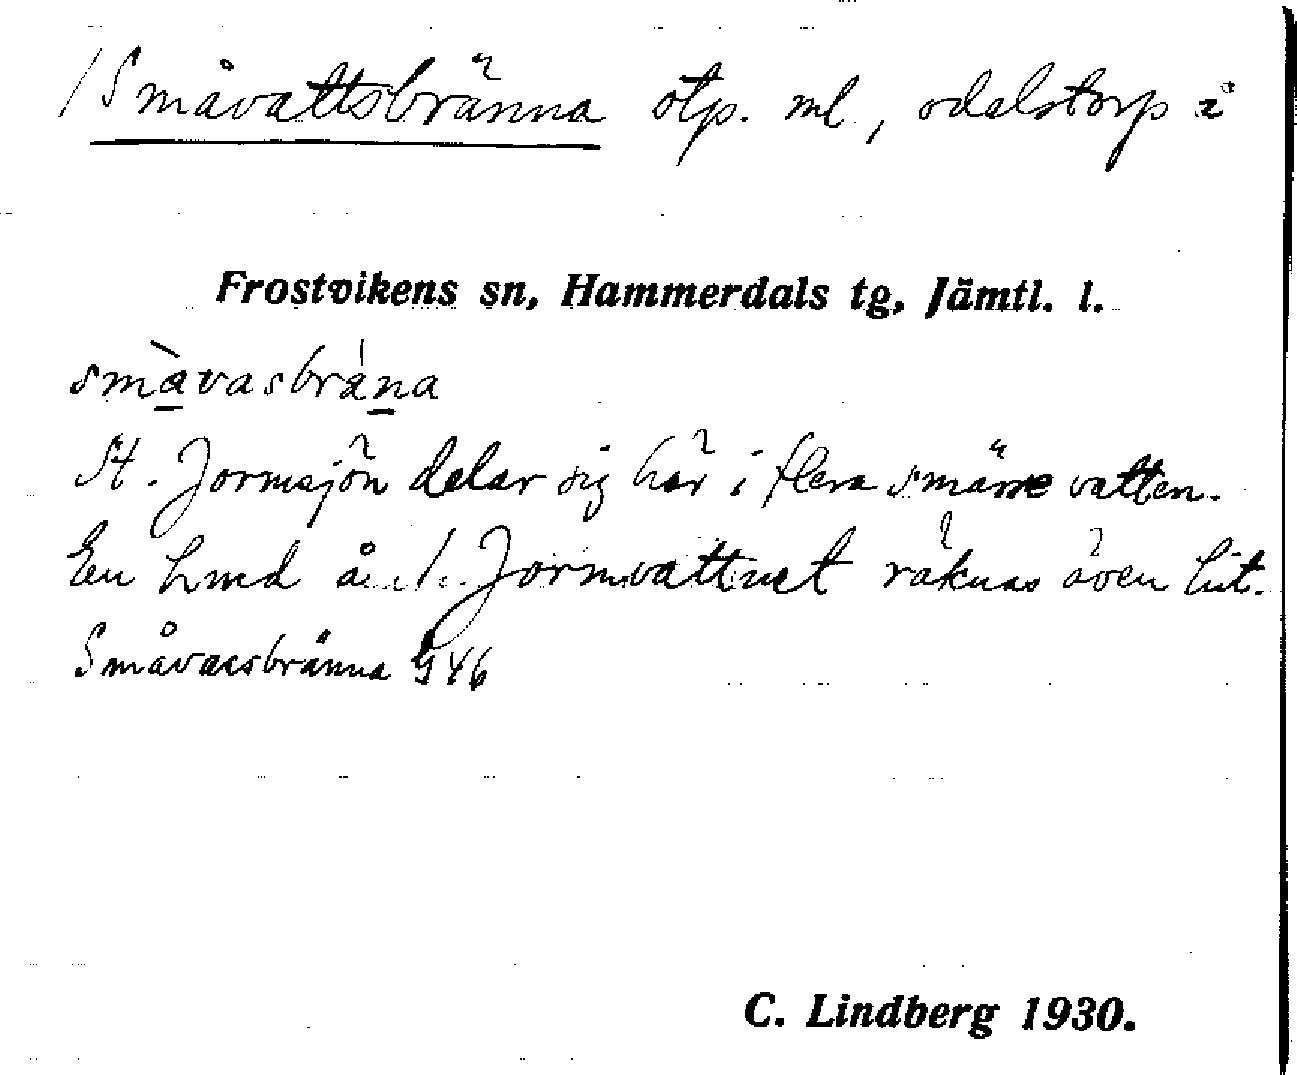 /Småvattsbränna ötp. ml, odelstorp i
Frostvikens sn, Hammerdals tg, Jämtl. l.
smàvasbrána
St. Jormsjön delar sig här i flera smärre vatten.
En hmd å Jormvattnet räknas även hit.
Småvassbränna 946
C. Lindberg 1930.